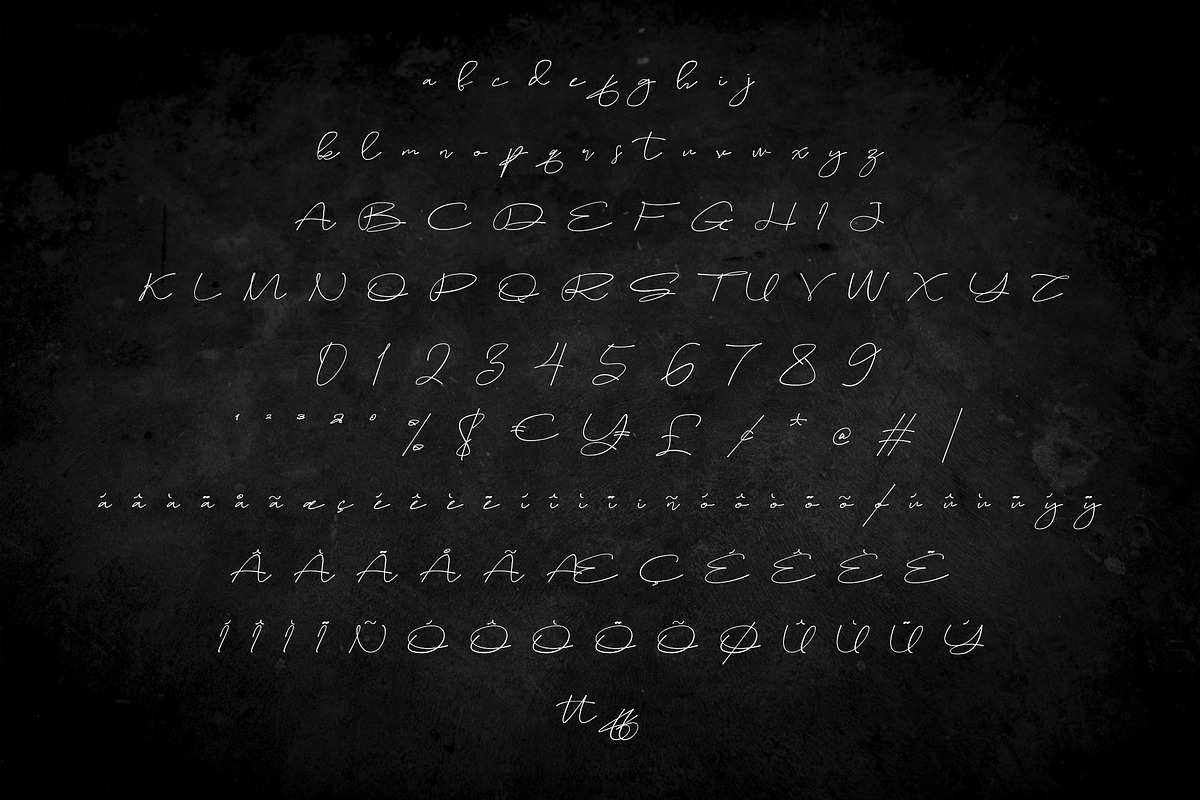 a b c d e f g h i j
k l m n o p q r s t u v w x y z
A B C D E F G H I J
K L M N O P Q R S T U V W X Y Z
0 1 2 3 4 5 6 7 8 9
¹ ² ³ ª º % $ € ¥ £ ¢ * @ # |
á â à ä å ã æ ç é ê è ë í î ì ï i ñ ó ô ò ö õ ø ú û ù ü ý ÿ
Â À Ä Å Ã Æ Ç É Ê È Ë
Í Î Ì Ï Ñ Ó Ô Ò Ö Õ Ø Û Ù Ü Ý
tt ff